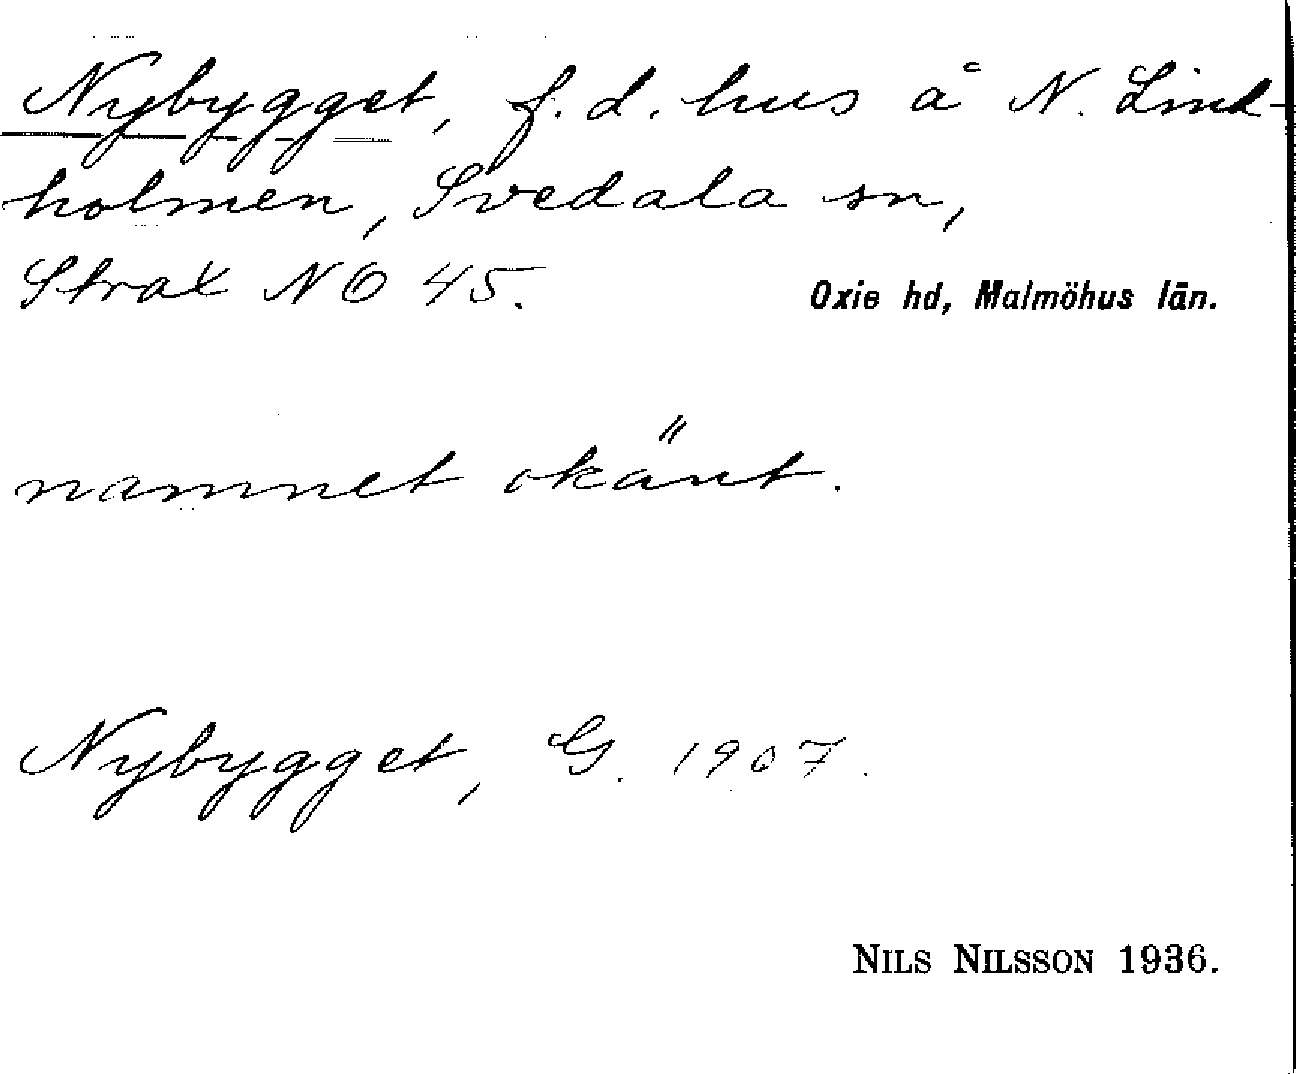 Nybygget, f. d. hus å N. Lind-
holmen, Svedala sn,
Strax NO 45.
Oxie hd, Malmöhus län.
namnet okänt.
Nybygget, G. 1907.
NILS NILSSON 1936.